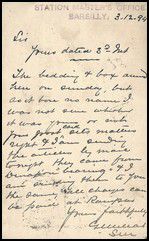 STATION MASTER'S OFFICE
BAREILLY. 3-12-94
Sir
Yours dated 3rd Inst
The bedding & box arrd
here on sunday, but
as it bore no name I
was not sure whether
it was yours or not
your good matters
right & I am sending
the articles by
tonight they came from
bearing & I
am sending them to you
the charges can
be paid at Rampur
Yours faithfully